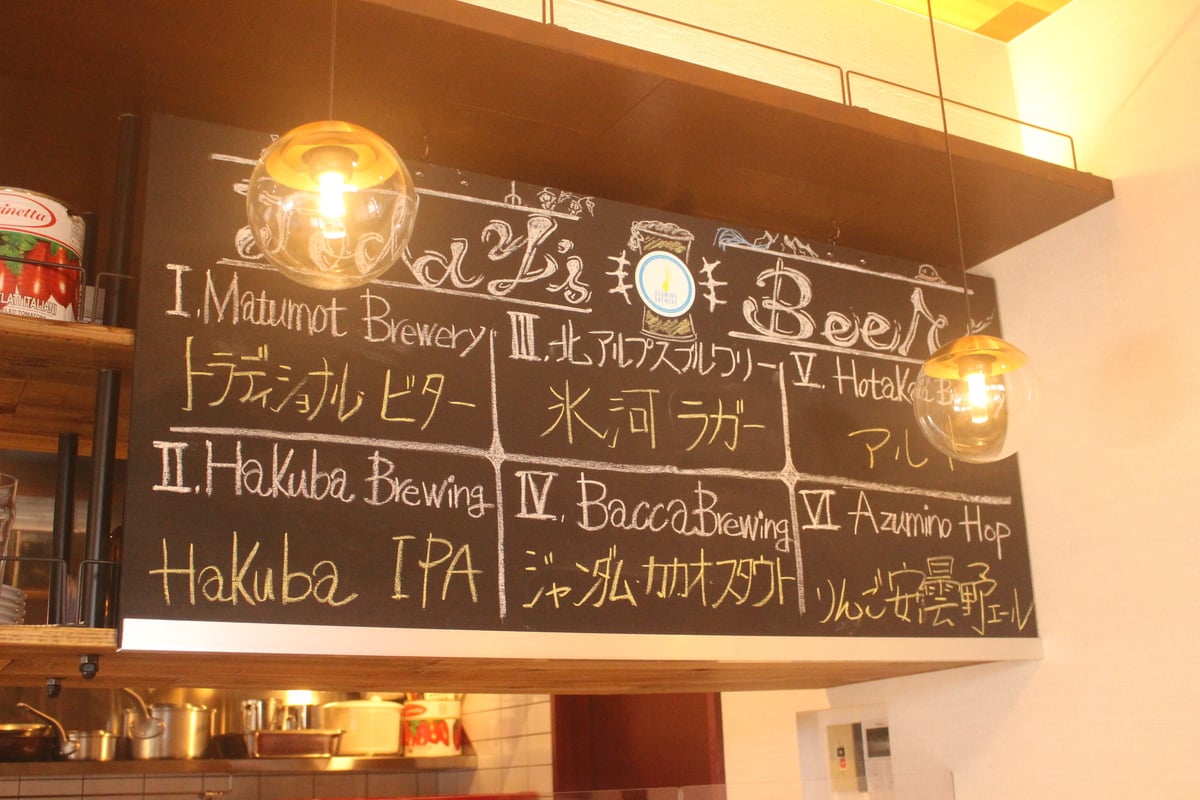 Today's Beer
AZUMINO
BREWERY
I. Matumot Brewery
トラディショナル ビター
II. Hakuba Brewing
Hakuba IPA
III. 北アルプスブルワリー
氷河 ラガー
IV. Bacca Brewing
ジャンダム・カカオ・スタウト
V. Hotaka
アルト
VI Azumino Hop
りんご安曇野エール